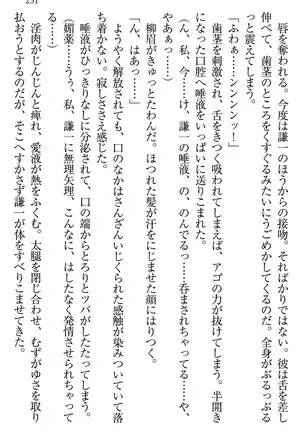 231
唇を奪われる。今度は謙一のほうからの接吻。そればかりではない。彼は舌を差し
伸べて、歯茎のところをくすぐるみたいにうごめかしてくるのだ。全身がぶるっぷる
っと震えてしまう。
「ふわぁ……シンンンッ！」
歯茎を刺激され、舌をきつく吸われてしまえば、アゴの力が抜けてしまう。半開き
になった口腔へ唾液をいっぱいに送りこまれた。
（ん、私、今……け、謙一の唾液、の、のんでるっ……呑まされちゃって……やぁ
やあぁっ……）
「ん、はあっ……」
柳眉がきゅっとたわんだ。ほつれた髪が汗をにじませた顔にはりつく。
ようやく解放されても、口のなかはさんざんいじくられた感触が染みついていて落
ち着かない。寂しささえ感じた。
唾液がひっきりなしに分泌されて、口の端からとろりとツバがこぼれてしまう。
（媚薬……うぅ、私、謙一に無理矢理、こんなに、はしたなく発情させられちゃって
る……）
淫肉がじんじんと痺れ、愛液が熱をふくむ。太腿を閉じ合わせ、むずがゆさを取り
払おうとするのだが、そこへすかさず謙一が体をすべりこませてきた。